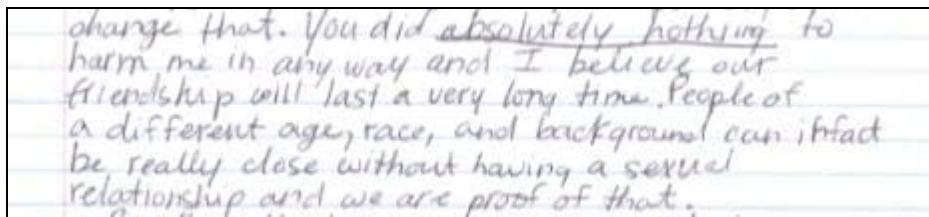 change that. You did absolutely nothing to
harm me in any way and I believe our
friendship will last a very long time. People of
a different age, race, and background can infact
be really close without having a sexual
relationship and we are proof of that.